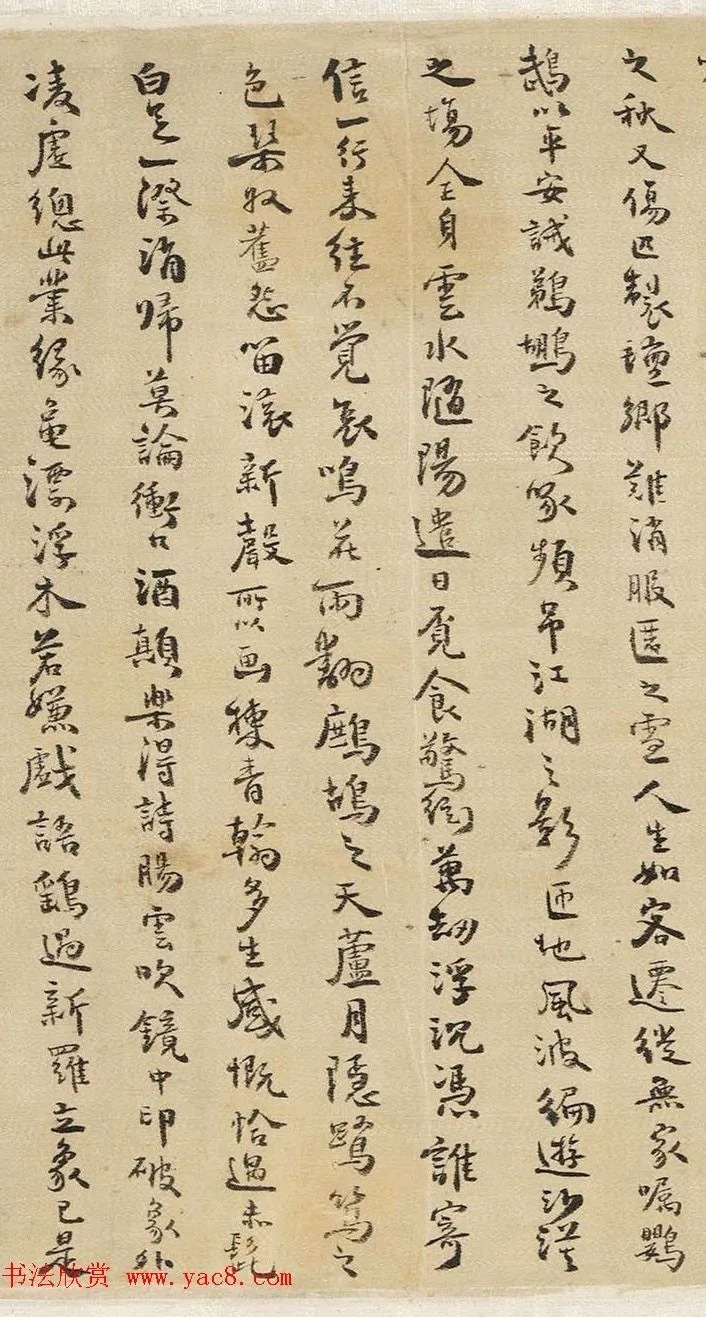 之秋又傷匹製蘧鄉難消服匿之雪人生如客遷從無家囑鸚
鵡以平安誡鷄鶋之飲啄頻弔江湖之影匝地風波徧遊沙漠
之塲全身雲水隨陽遣日覓食驚網萬劫浮沉憑誰寄
信一行來往不覺哀鳴花雨翻鷓鴣之天蘆月隱鷺鷥之
色琴奴舊怨笛滾新聲所以畫棟青翰多生感慨恰過赤髭
白足一際消歸莫論衝口酒顛樂得詩腸雲吹鏡中印破象外
凌虛總此業緣黿漂浮木若嫌戲語鷂過新羅立象已是
书法欣赏 www.yac8.com